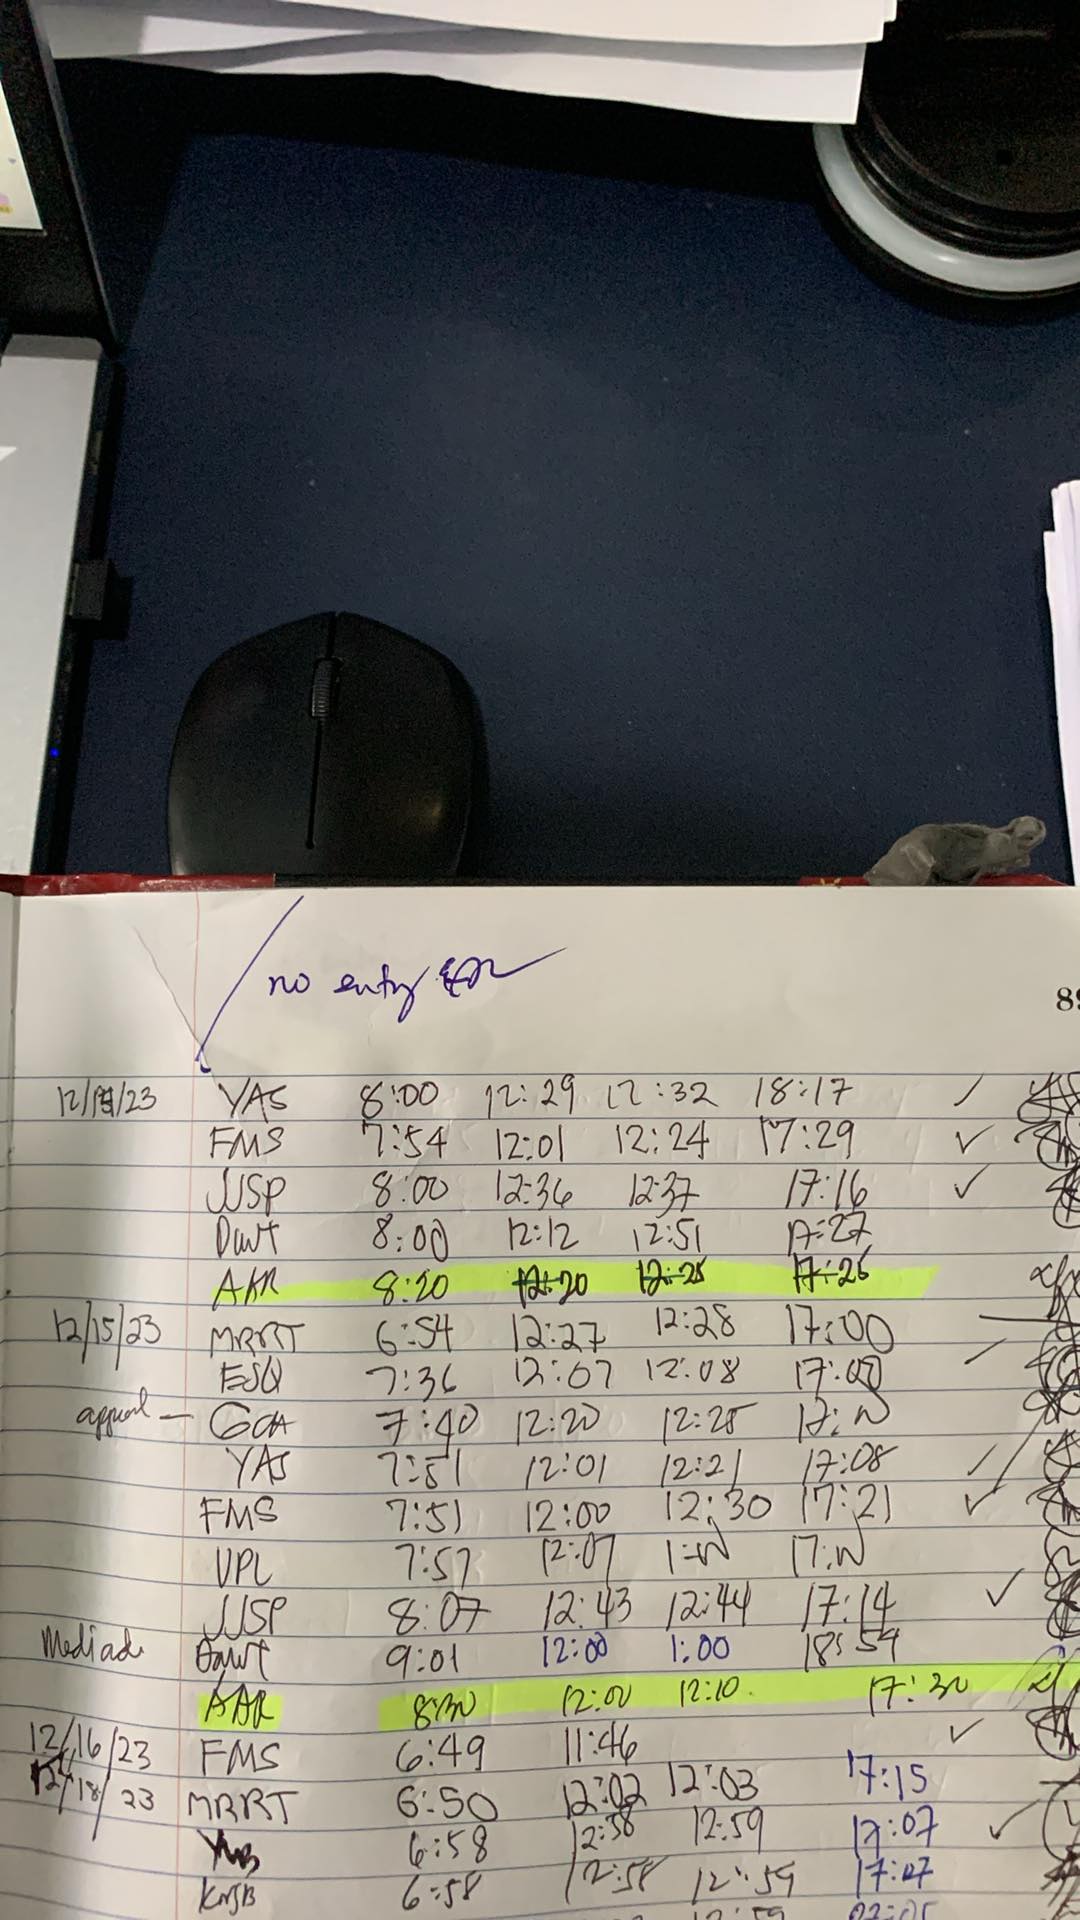 no entry
89
12/14/23 YAS 8:00 12:29 12:32 18:17 ✓
FMS 7:54 12:01 12:24 17:29 ✓
JJSP 8:00 12:36 12:37 17:16 ✓
8:00 12:12 12:51 17:27
AAR 8:20 12:20 12:25 17:26
12/15/23 MRRT 6:54 12:27 12:28 17:00
ESQ 7:36 12:07 12:08 17:00
7:40 12:20 12:25
YAS 7:51 12:01 12:21 17:08
FMS 7:51 12:00 12:30 17:21 ✓
VPL 7:57 12:07
JJSP 8:07 12:43 12:44 17:14 ✓
9:01 12:00 1:00 18:59
AAR 8:30 12:00 12:10 17:30
12/16/23 FMS 6:49 11:46 ✓
12/18/23 MRRT 6:50 12:02 12:03 17:15
6:58 12:58 12:59 17:07 ✓
KMJB 6:58 12:58 12:59 17:27
12:59